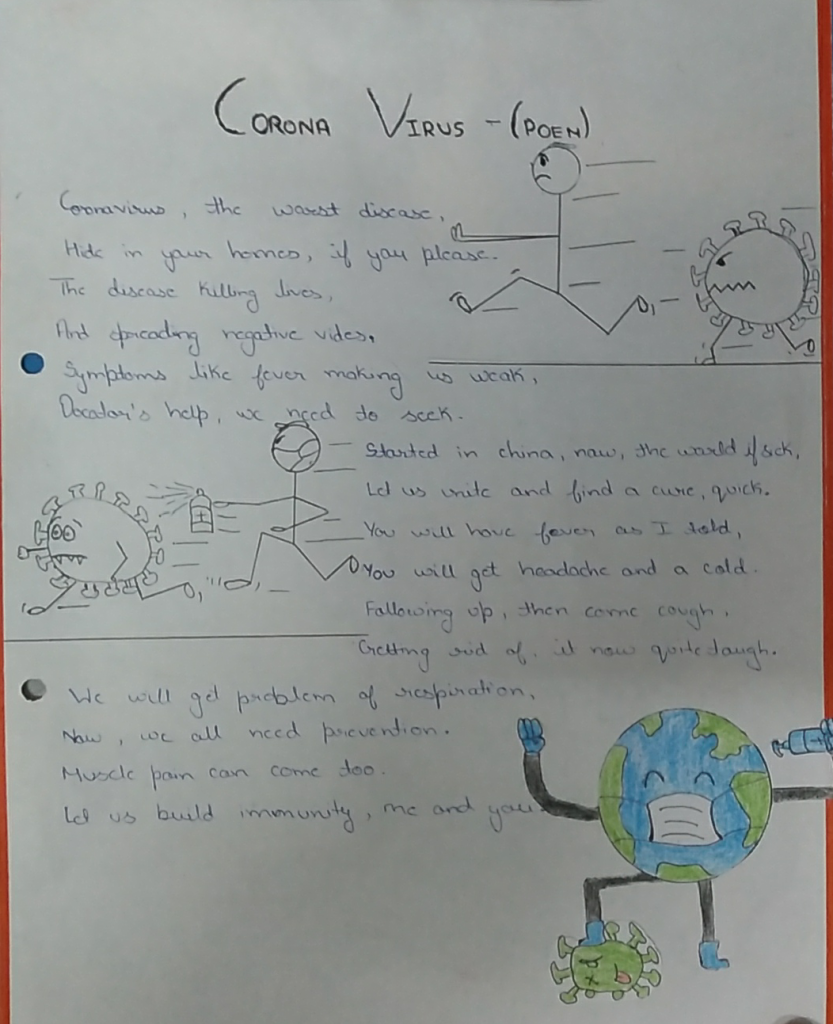 CORONA VIRUS - (POEN)
Coronavirus, the warst disease,
Hide in your homes, if you please.
The disease killing lives,
And spreading negative vides.
Symptoms like fever making us weak,
Docator's help, we need to seek.
Started in china, now, the world if sick,
Let us unite and find a cure, quick.
You will have fever as I told,
You will get headache and a cold.
Following up, then come cough.
Getting rid of, it now quite taugh.
We will get problem of respiration,
Now, we all need prevention.
Muscle pain can come too.
Let us build immunity, me and you